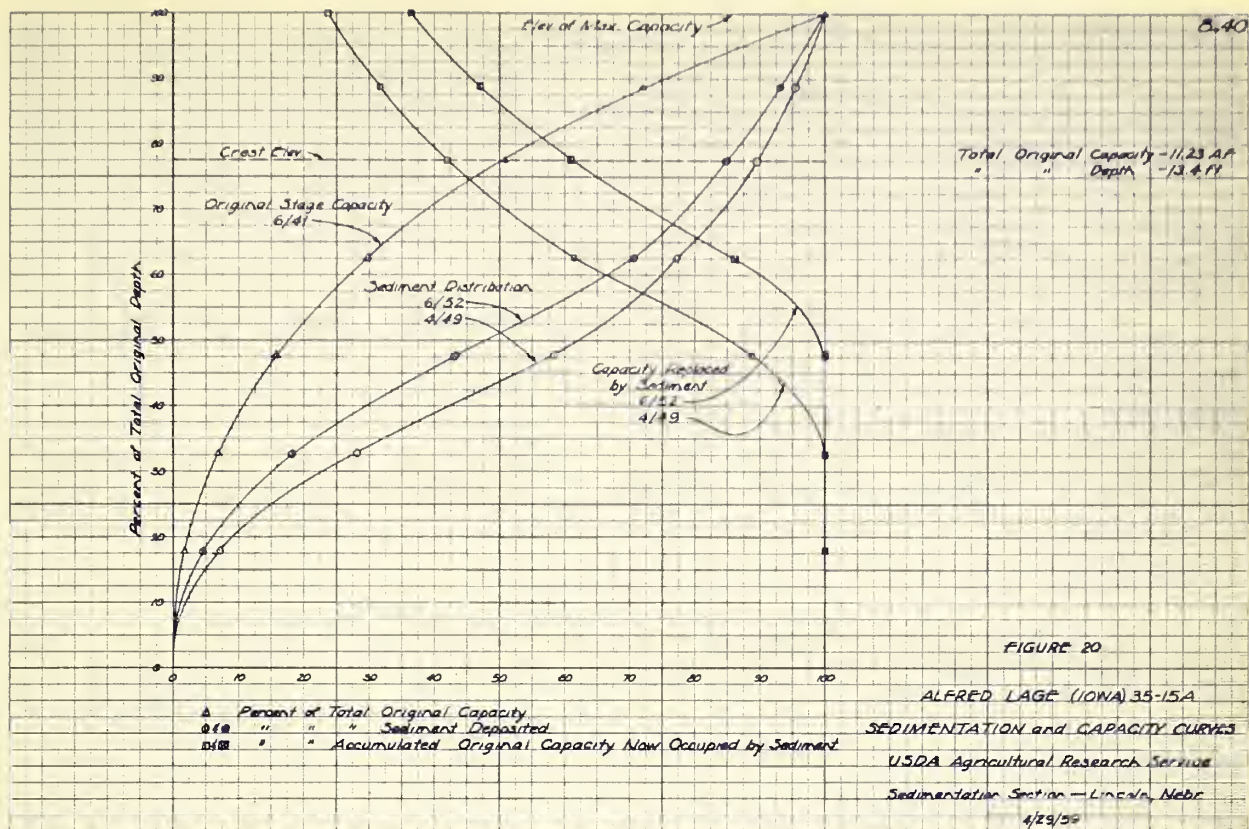 8.40
Elev of Max. Capacity
Crest Elev.
Total Original Capacity - 11.23 AF
" " Depth - 13.4 ft
Original Stage Capacity
6/41
Sediment Distribution
6/52
4/49
Capacity Replaced
by Sediment
6/52
4/49
Percent of Total Original Depth
100
90
80
70
60
50
40
30
20
10
0
0 10 20 30 40 50 60 70 80 90 100
FIGURE 20
Δ Percent of Total Original Capacity
" " " Sediment Deposited
" " Accumulated Original Capacity Now Occupied by Sediment
ALFRED LAGE (IOWA) 35-15A
SEDIMENTATION and CAPACITY CURVES
USDA Agricultural Research Service
Sedimentation Section — Lincoln, Nebr.
4/29/59